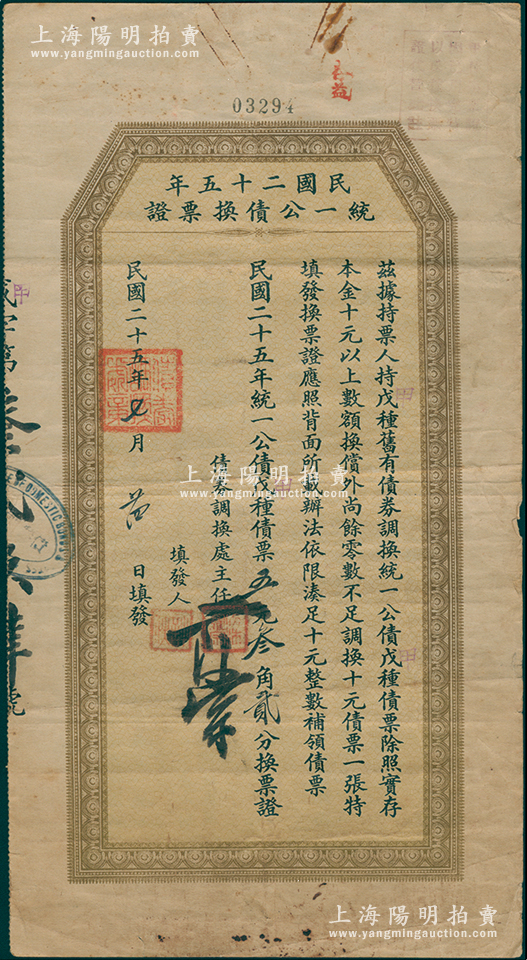 上海陽明拍賣
www.yangmingauction.com
永益
03294
民國二十五年
統一公債換票證
茲據持票人持戊種舊有債券調換統一公債戊種債票除照實存
本金十元以上數額換償外尚餘零數不足調換十元債票一張特
填發換票證應照背面所載辦法依限湊足十元整數補領債票
民國二十五年統一公債戊種債票五元叁角貳分換票證
債券調換處主任
填發人
民國二十五年 月 日填發
上海陽明拍賣
www.yangmingauction.com
號
DOMESTIC BONDS
上海陽明拍賣
www.yangmingauction.com